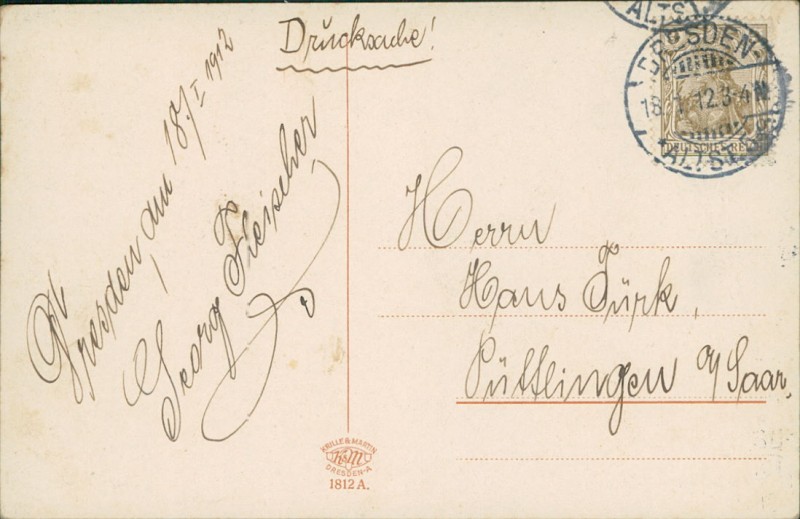 Drucksache!
Dresden, am 18/I 1912
Georg Fleischer
Herrn
Hans Türk,
Püttlingen a/Saar,
KRILLE & MARTIN
K&M
DRESDEN-A
1812 A.
DRESDEN-
18.1.12.3-4N
ALTST.
DEUTSCHES REICH
ALTST.